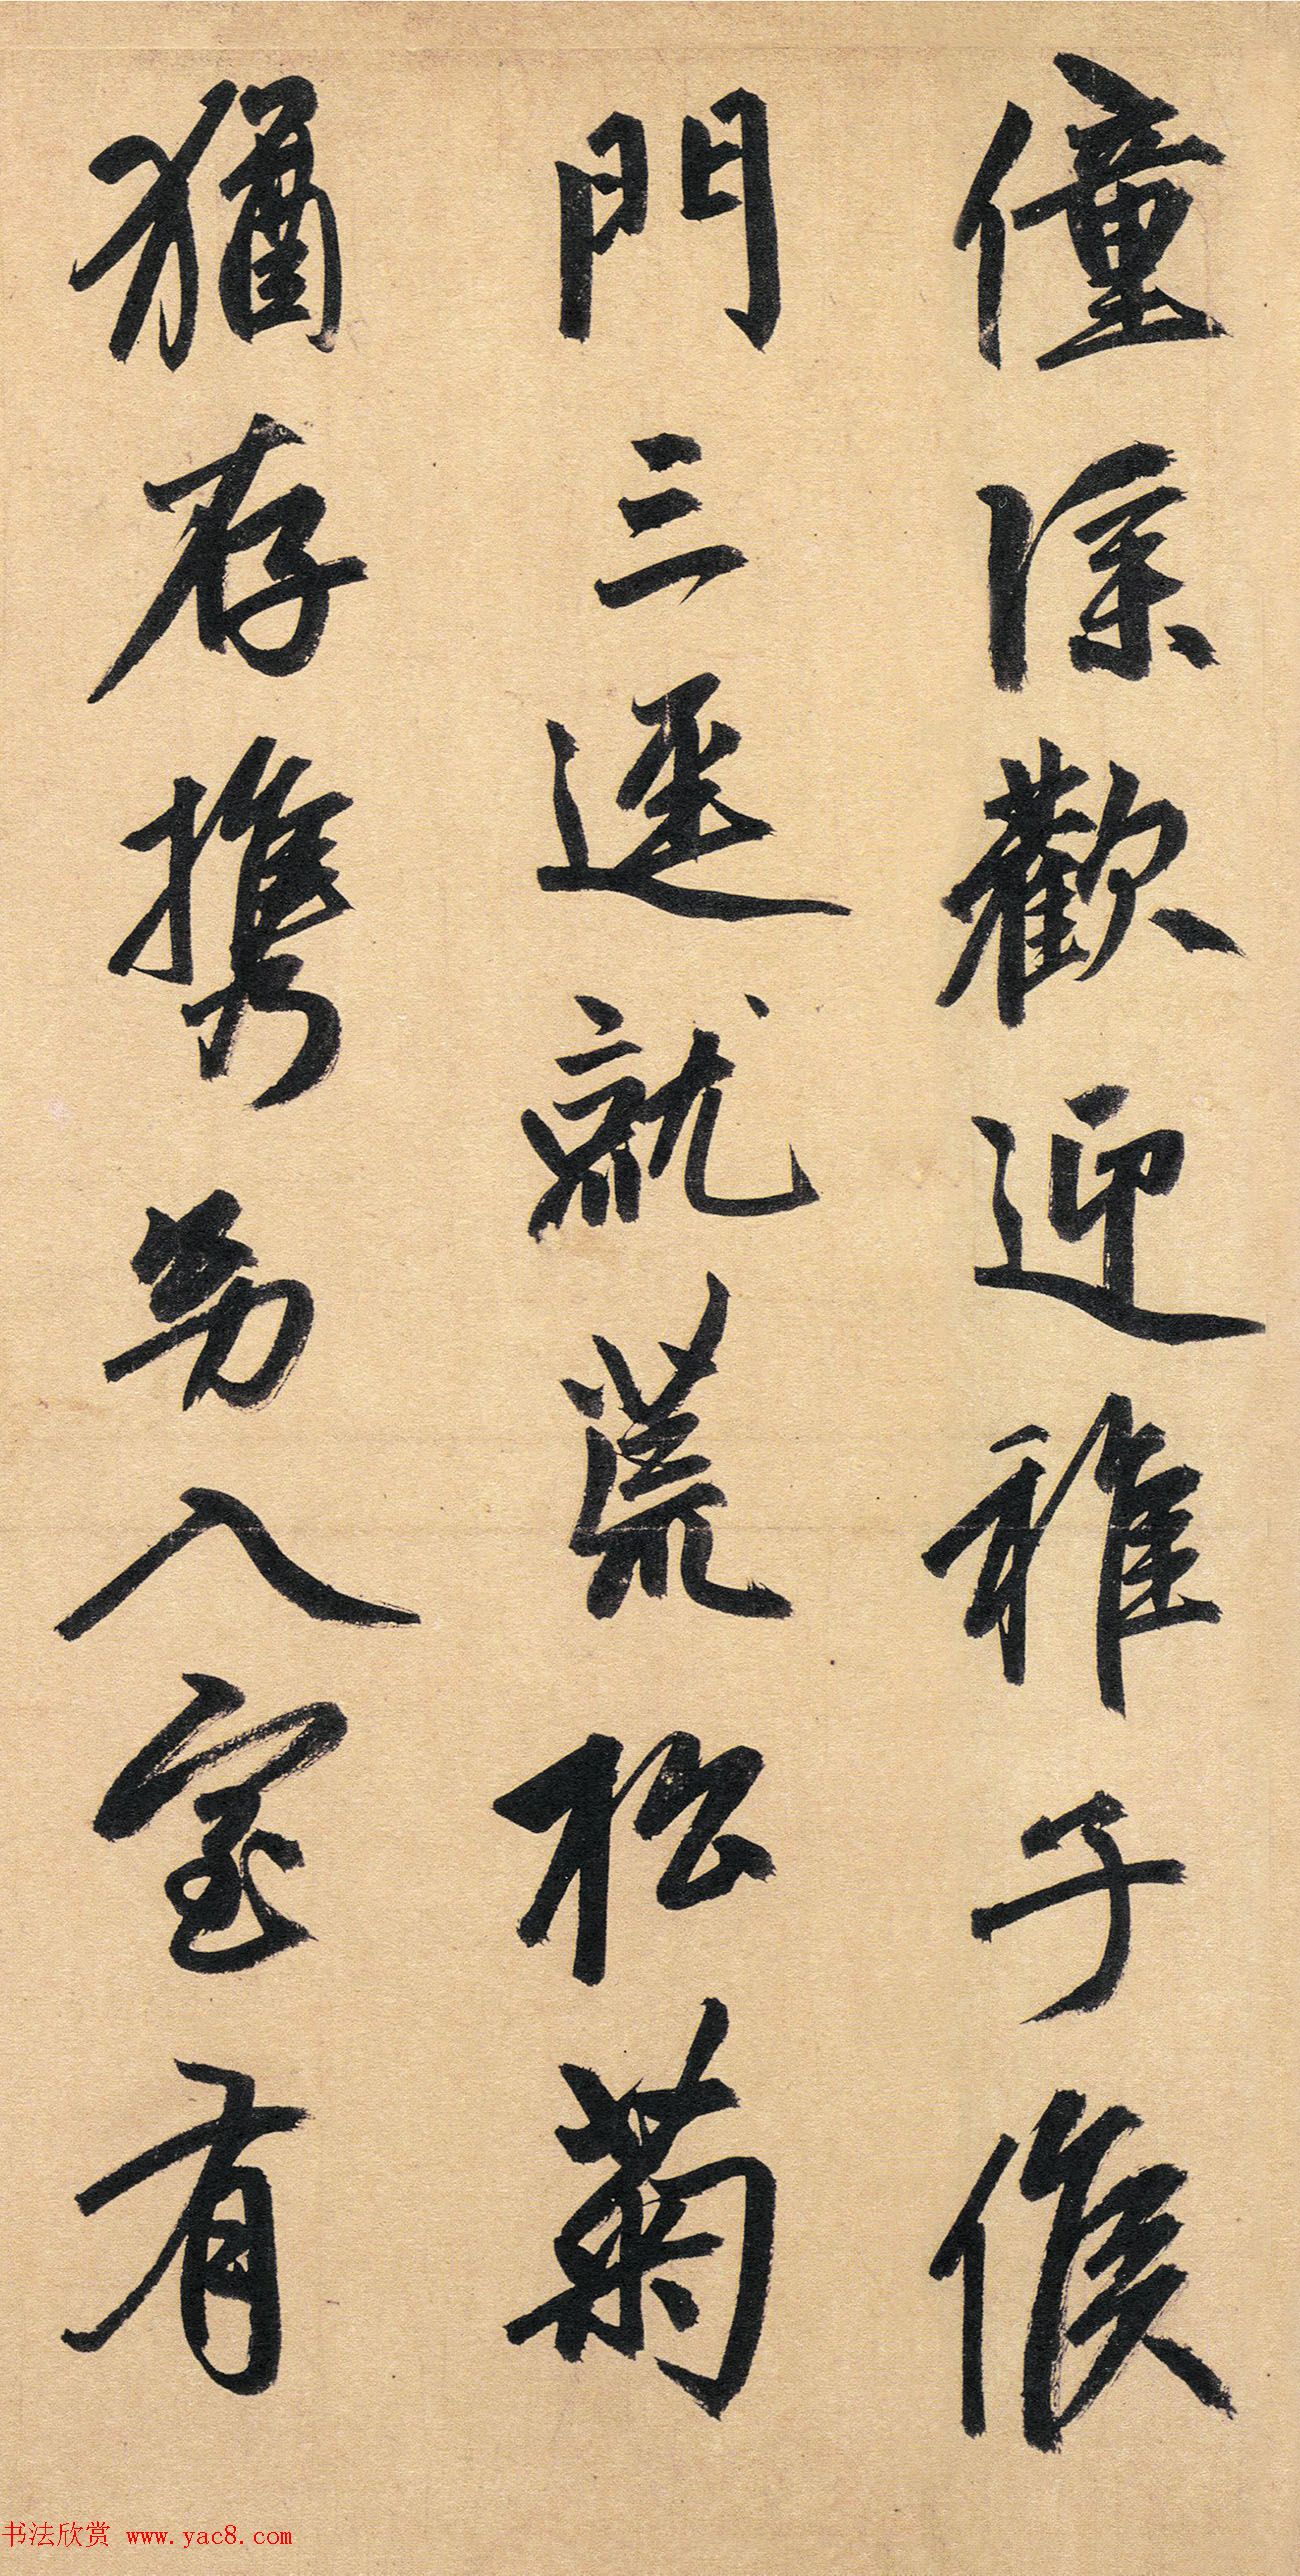 僮僕歡迎稚子候
門三逕就荒松菊
猶存携幼入室有
书法欣赏 www.yac8.com